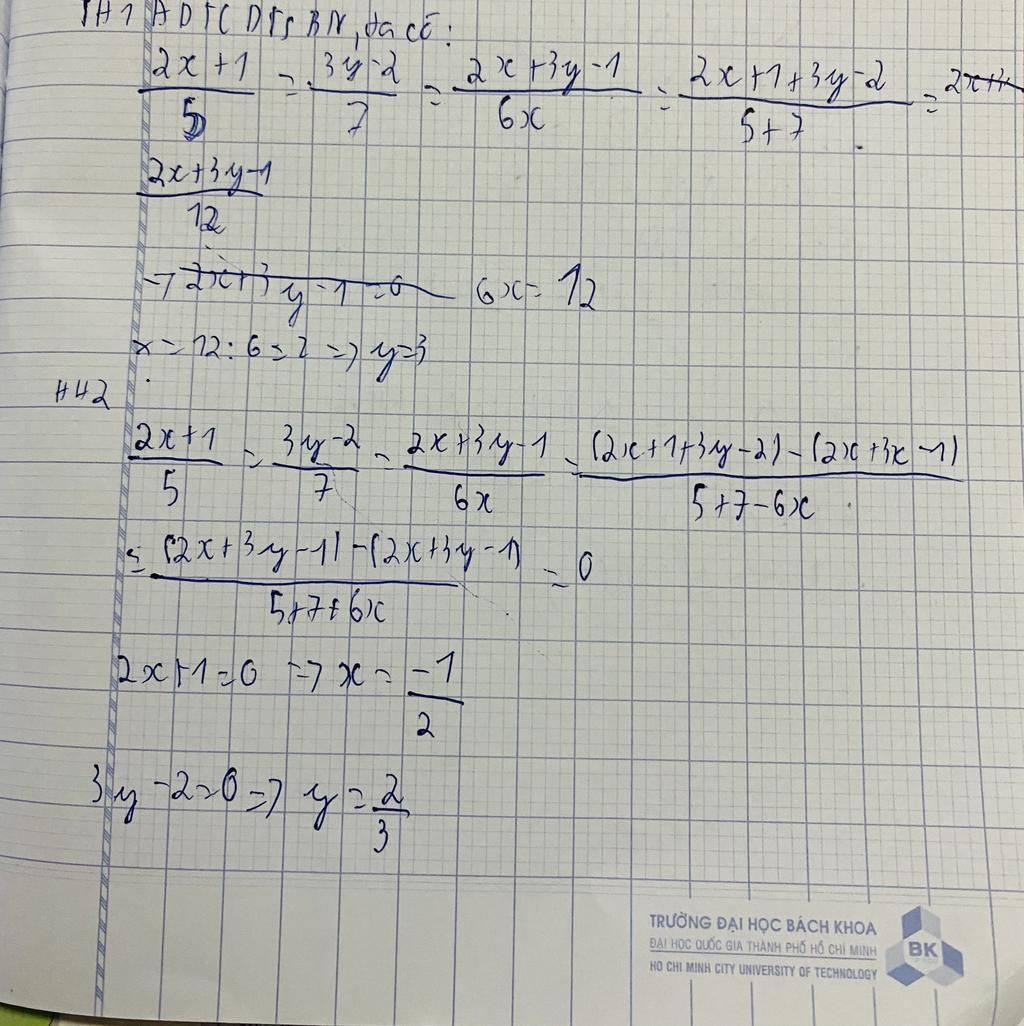 TH1 ADTCDTSBN, ta có:
2x+1/5 = 3y-2/7 = 2x+3y-1/6x = 2x+1+3y-2/5+7 =
2x+3y-1/12
=> 2x+3y-1=0 6x= 12
x = 12:6=2 => y=3
TH2
2x+1/5 = 3y-2/7 = 2x+3y-1/6x = (2x+1+3y-2)-(2x+3x-1)/5+7-6x
= (2x+3y-1)-(2x+3y-1)/5+7+6x = 0
2x+1=0 => x = -1/2
3y-2=0 => y = 2/3
TRƯỜNG ĐẠI HỌC BÁCH KHOA
ĐẠI HỌC QUỐC GIA THÀNH PHỐ HỒ CHÍ MINH
HO CHI MINH CITY UNIVERSITY OF TECHNOLOGY
BK